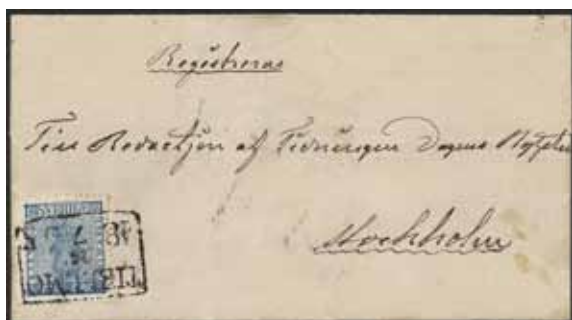 Registreras
Till Redactjon af Tidningen Dagens Nyheter
Stockholm